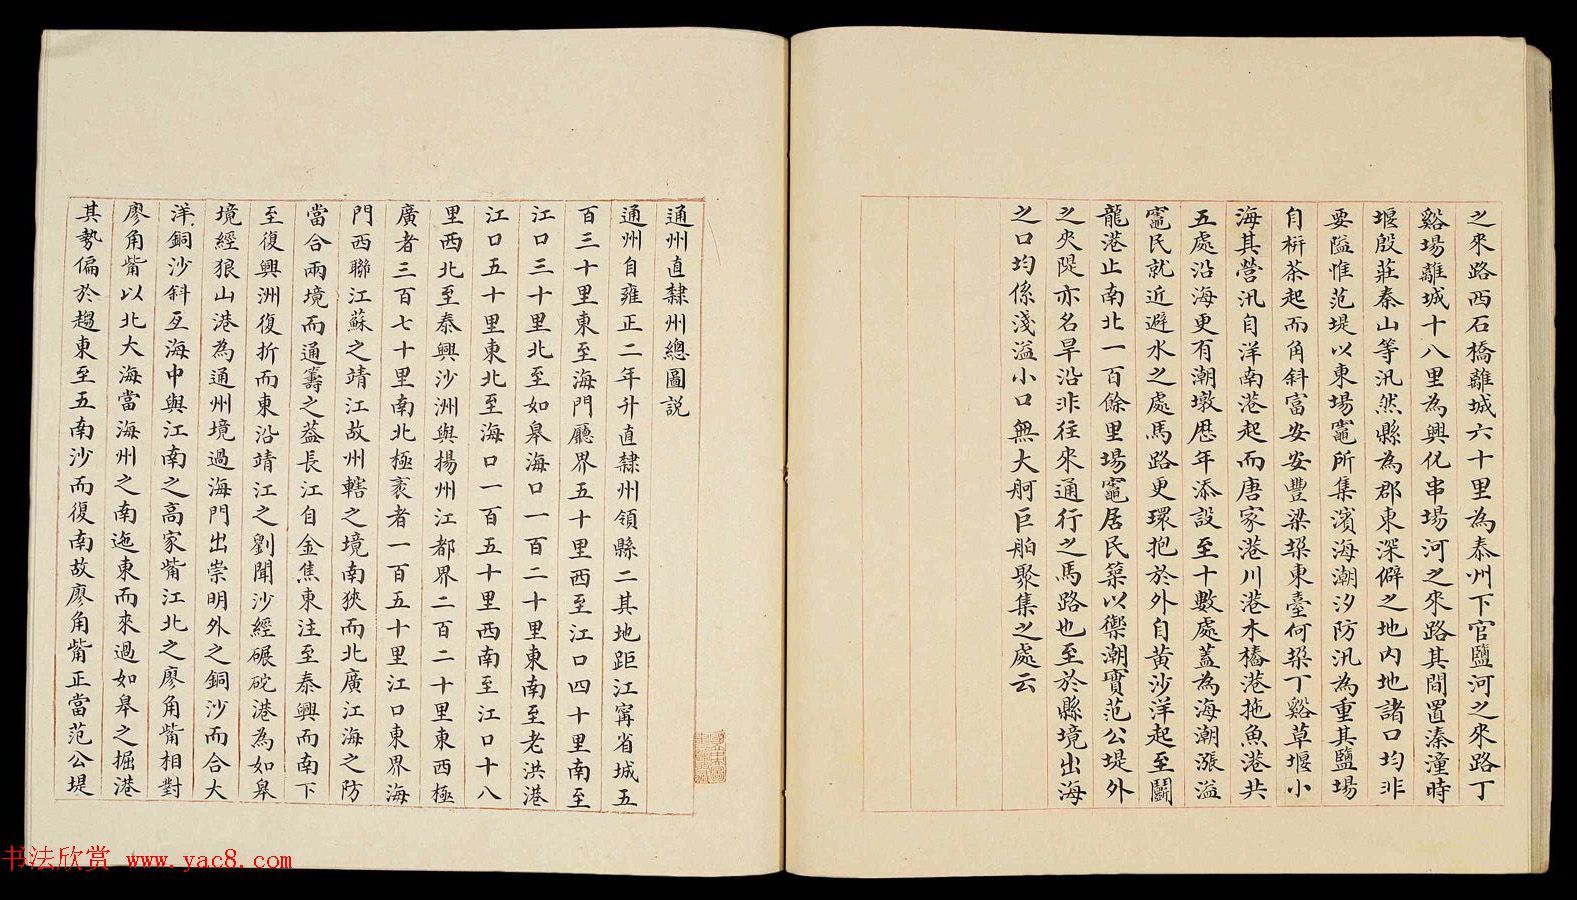 之來路西石橋離城六十里為泰州下官鹽河之來路丁
谿場離城十八里為興化串場河之來路其間置溱潼時
堰殷莊秦山等汛然縣為郡東深僻之地內地諸口均非
要隘惟范堤以東場竈所集濱海潮汐防汛為重其鹽場
自栟茶起而角斜富安安豐梁垛東臺何垛丁谿草堰小
海其營汛自洋南港起而唐家港川港木樁港拖魚港共
五處沿海更有潮墩歷年添設至十數處蓋為海潮漲溢
竈民就近避水之處馬路更環抱於外自黃沙洋起至鬬
龍港止南北一百餘里場竈居民築以禦潮實范公堤外
之夾隄亦名旱沿非往來通行之馬路也至於縣境出海
之口均係淺溢小口無大舸巨舶聚集之處云
通州直隸州總圖説
通州自雍正二年升直隸州領縣二其地距江寧省城五
百三十里東至海門廳界五十里西至江口四十里南至
江口三十里北至如皋海口一百二十里東南至老洪港
江口五十里東北至海口一百五十里西南至江口十八
里西北至泰興沙洲與揚州江都界二百二十里東西極
廣者三百七十里南北極袤者一百五十里江口東界海
門西聯江蘇之靖江故州轄之境南狹而北廣江海之防
當合兩境而通籌之葢長江自金焦東注至泰興而南下
至復興洲復折而東沿靖江之劉聞沙經碾砣港為如皋
境經狼山港為通州境過海門出崇明外之銅沙而合大
洋銅沙斜亙海中與江南之高家觜江北之廖角觜相對
廖角觜以北大海當海州之南迤東而來過如皋之掘港
其勢偏於趨東至五南沙而復南故廖角觜正當范公堤
书法欣赏 www.yac8.com